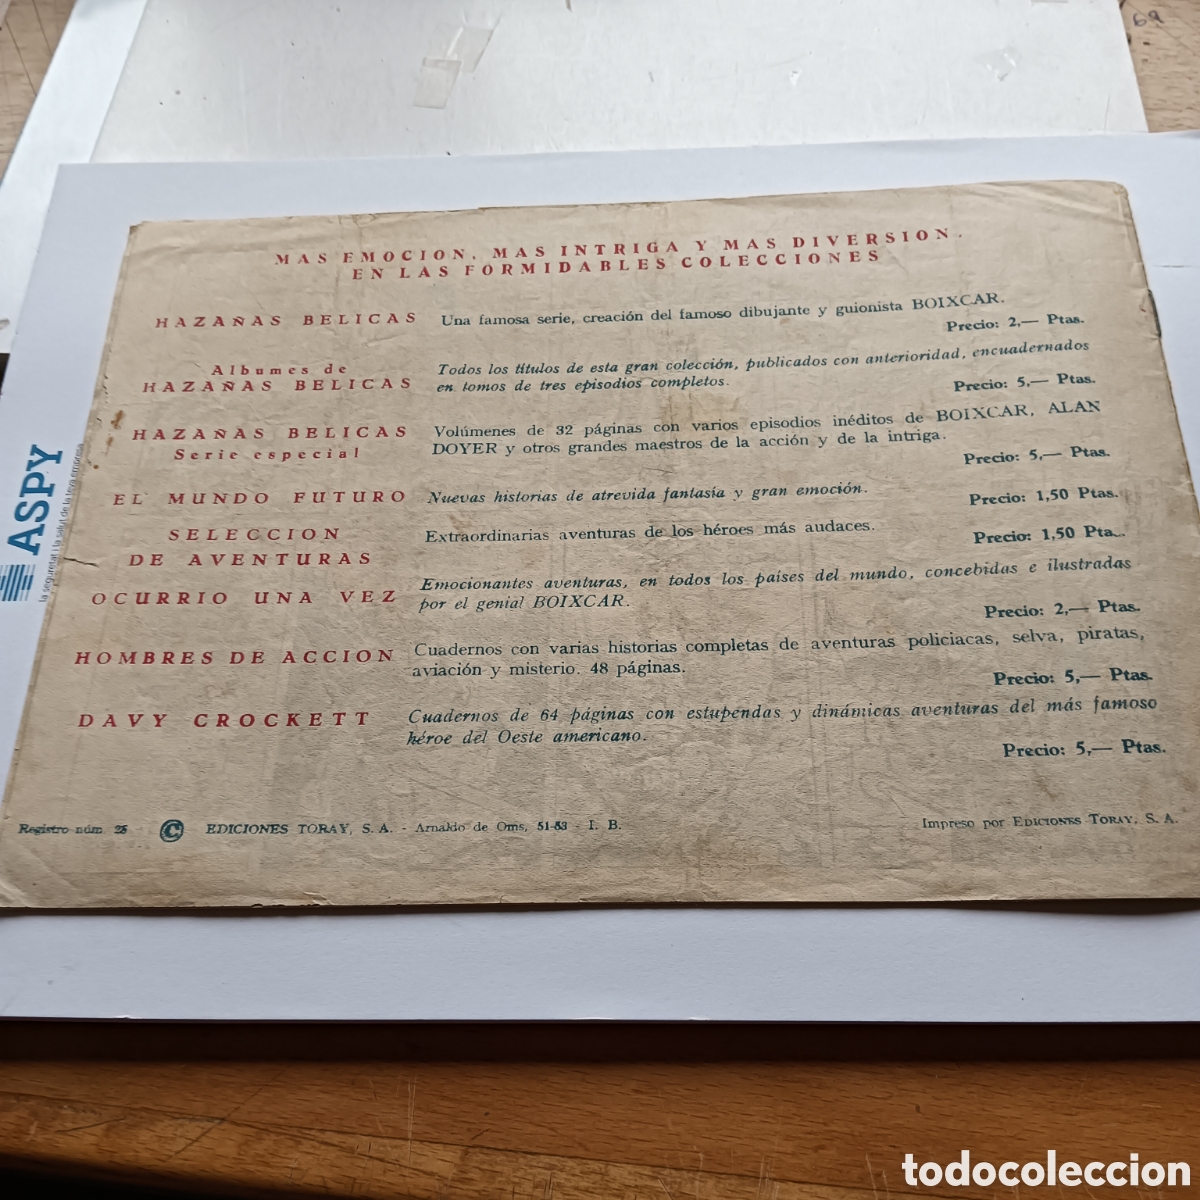 69
MAS EMOCION, MAS INTRIGA Y MAS DIVERSION,
EN LAS FORMIDABLES COLECCIONES
HAZAÑAS BELICAS Una famosa serie, creación del famoso dibujante y guionista BOIXCAR.
Precio: 2,— Ptas.
Albumes de
HAZAÑAS BELICAS
Todos los títulos de esta gran colección, publicados con anterioridad, encuadernados
en tomos de tres episodios completos.
Precio: 5,— Ptas.
HAZAÑAS BELICAS
Serie especial
Volúmenes de 32 páginas con varios episodios inéditos de BOIXCAR, ALAN
DOYER y otros grandes maestros de la acción y de la intriga.
Precio: 5,— Ptas.
EL MUNDO FUTURO Nuevas historias de atrevida fantasía y gran emoción. Precio: 1,50 Ptas.
SELECCION
DE AVENTURAS
Extraordinarias aventuras de los héroes más audaces. Precio: 1,50 Pta..
OCURRIO UNA VEZ
Emocionantes aventuras, en todos los países del mundo, concebidas e ilustradas
por el genial BOIXCAR.
Precio: 2,— Ptas.
HOMBRES DE ACCION
Cuadernos con varias historias completas de aventuras policiacas, selva, piratas,
aviación y misterio. 48 páginas.
Precio: 5,— Ptas.
DAVY CROCKETT
Cuadernos de 64 páginas con estupendas y dinámicas aventuras del más famoso
héroe del Oeste americano.
Precio: 5,— Ptas.
Registro núm. 25 © EDICIONES TORAY, S. A. - Arnaldo de Oms, 51-53 - I. B. Impreso por EDICIONES TORAY, S. A.
ASPY
la seguretat i la salut de la teva empresa
todocoleccion